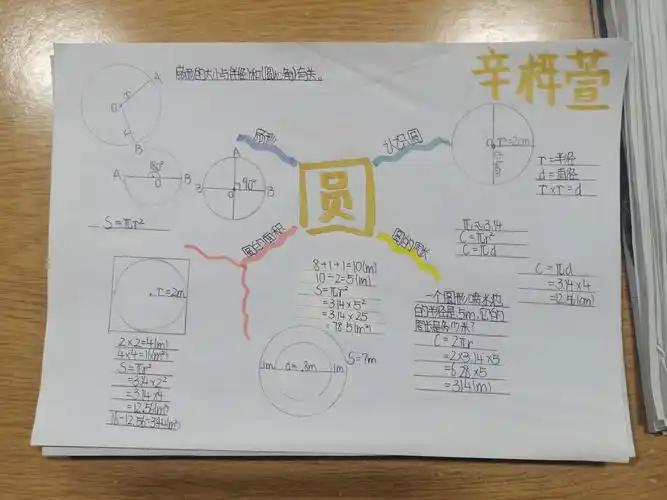 扇形的大小与(半径)和(圆心角)有关。
辛梓萱
扇形
认识圆
圆
圆的面积
圆的周长
A
r
O
B
180°
A
O
B
A
90°
B
B
S=πr²
O
r=2cm
r=半径
d=直径
r×r=d
π≈3.14
C=πr²
C=πd
C=πd
=3.14×4
=12.56(cm)
r=2m
2×2=4(m)
4×4=16(m²)
S=πr²
=3.14×2²
=3.14×4
=12.56(m²)
16-12.56=3.44(m²)
8+1+1=10(m)
10÷2=5(m)
S=πr²
=3.14×5²
=3.14×25
=78.5(m²)
1m
d=8m
1m
S=?m
一个圆形喷水池
的半径是5m,它的
周长是多少米?
C=2πr
=2×3.14×5
=6.28×5
=31.4(m)